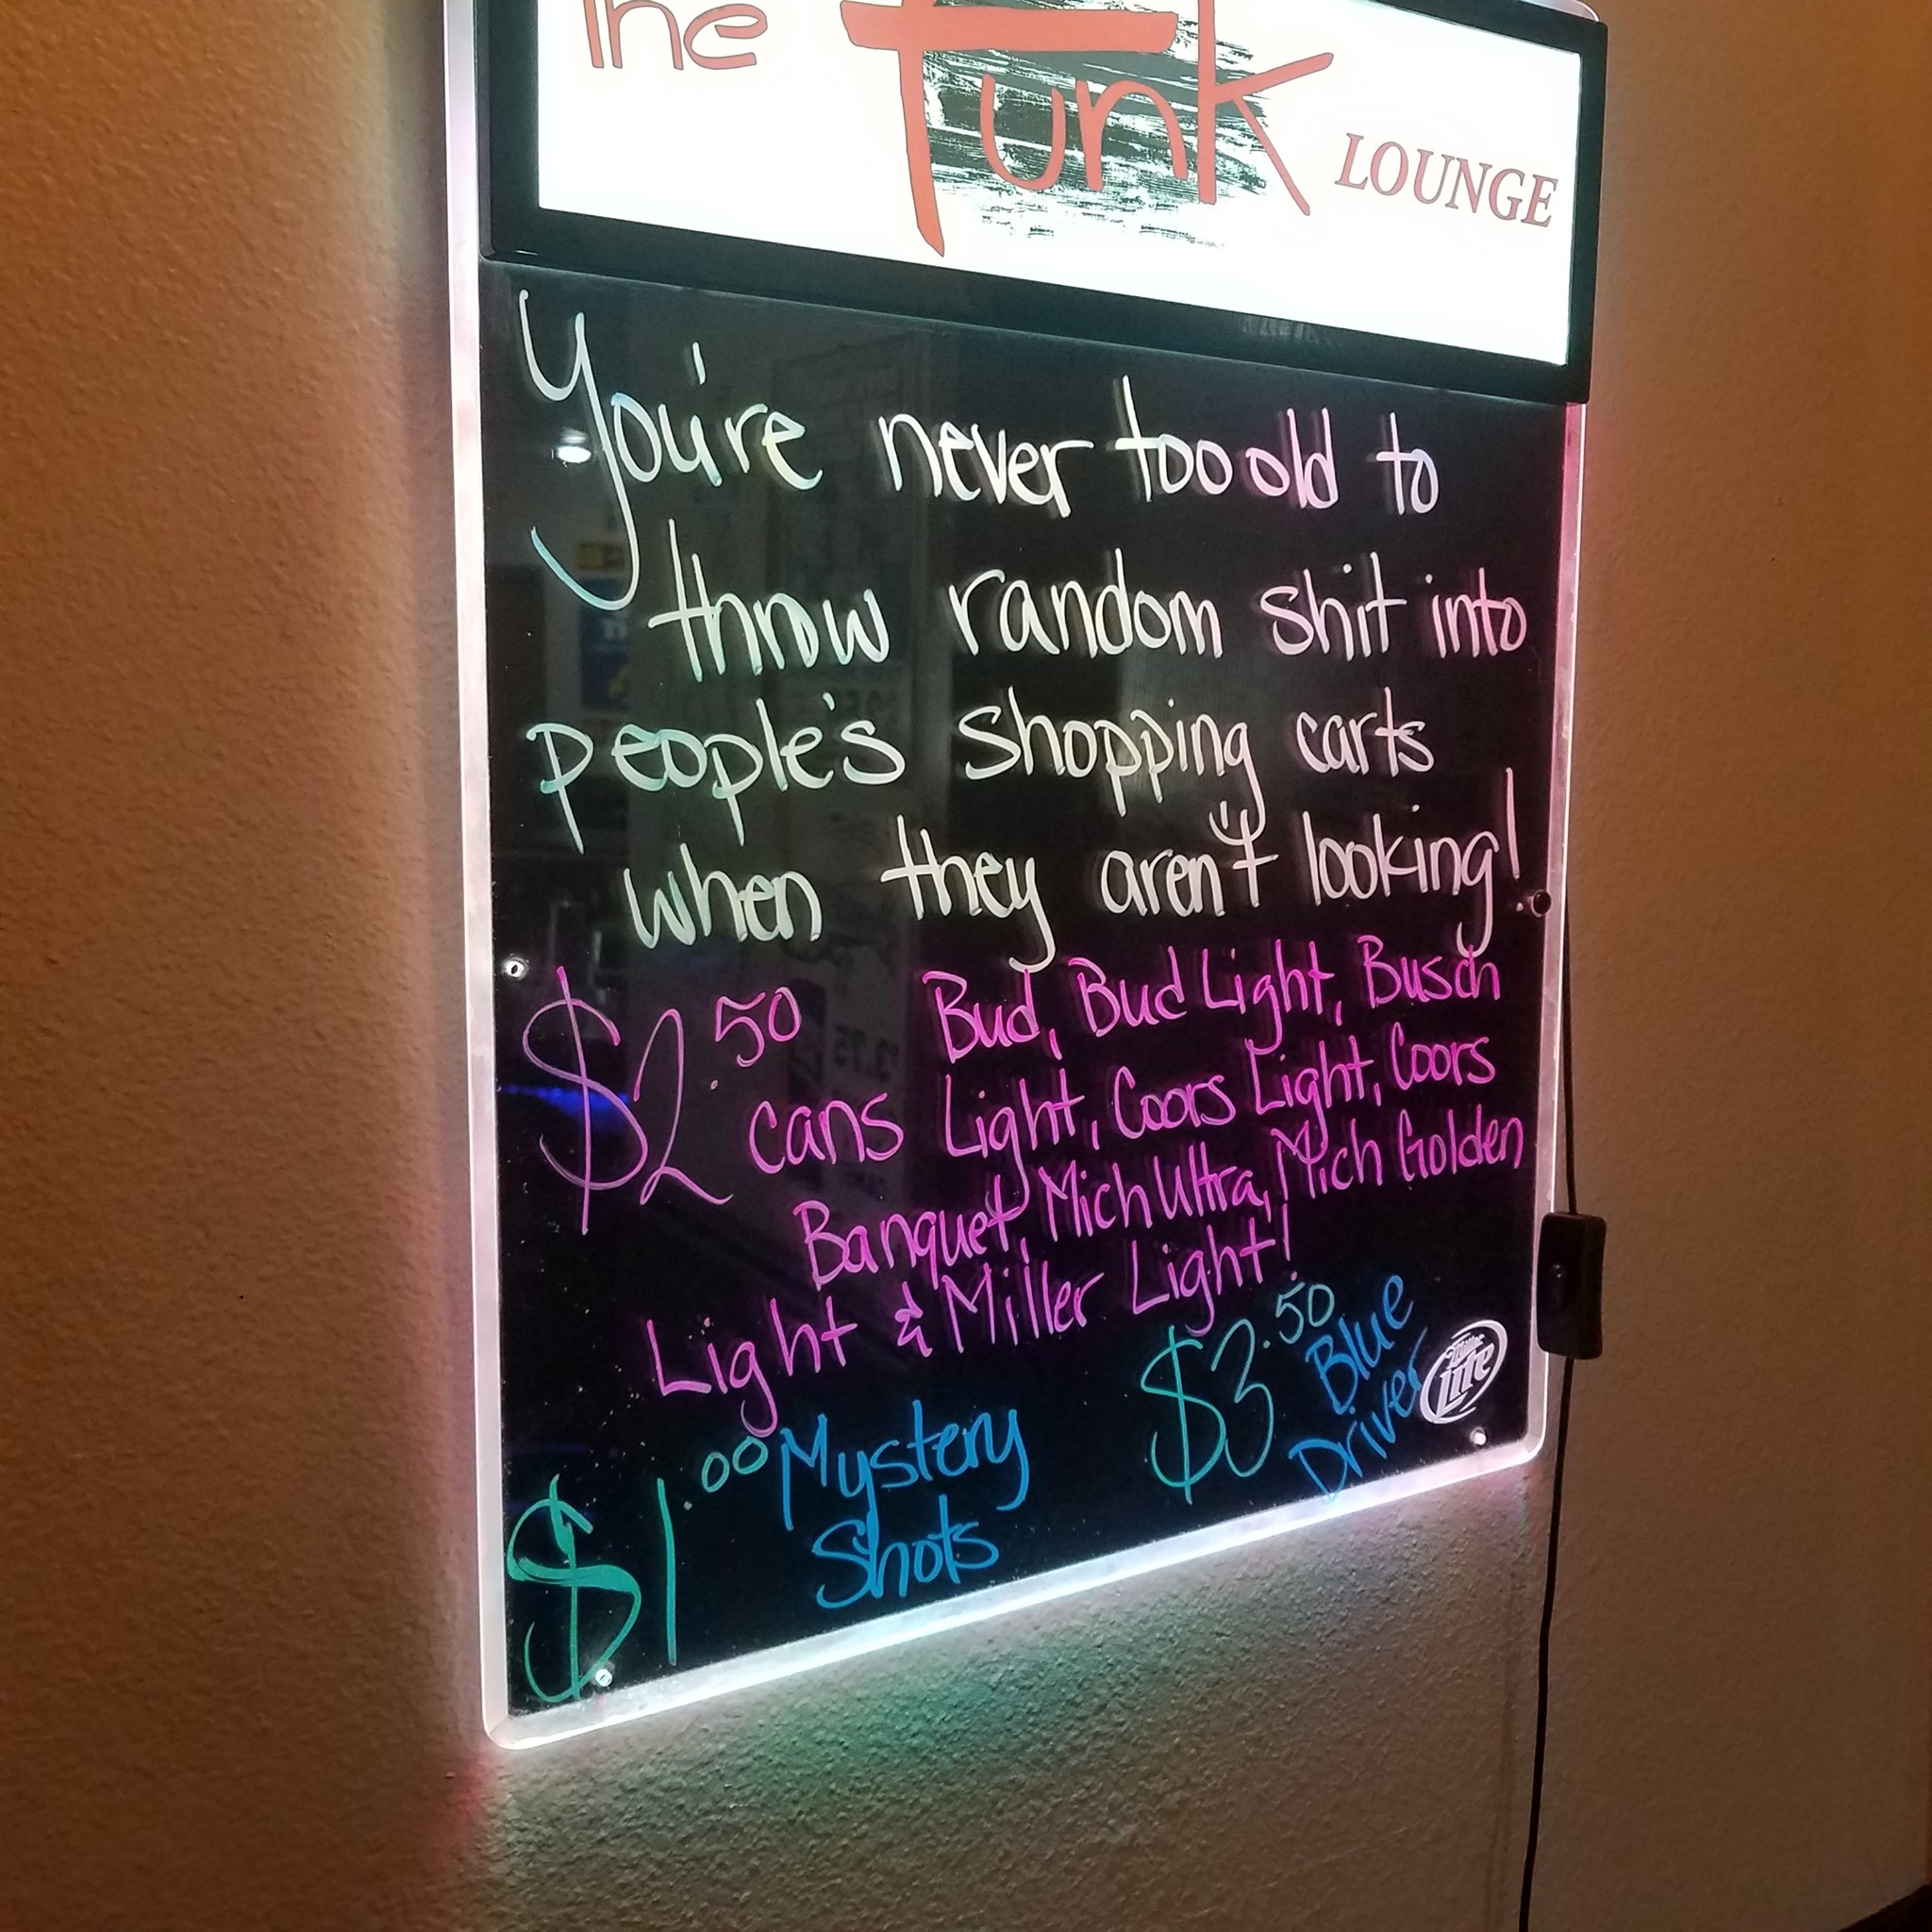 The Funk LOUNGE
You're never too old to
throw random shit into
people's shopping carts
when they aren't looking!
$2.50 Bud, Bud Light, Busch
cans Light, Coors Light, Coors
Banquet, Mich Ultra, Mich Golden
Light & Miller Light!
$1.00 Mystery
Shots
$3.50 Blue
Driver
Miller
Lite